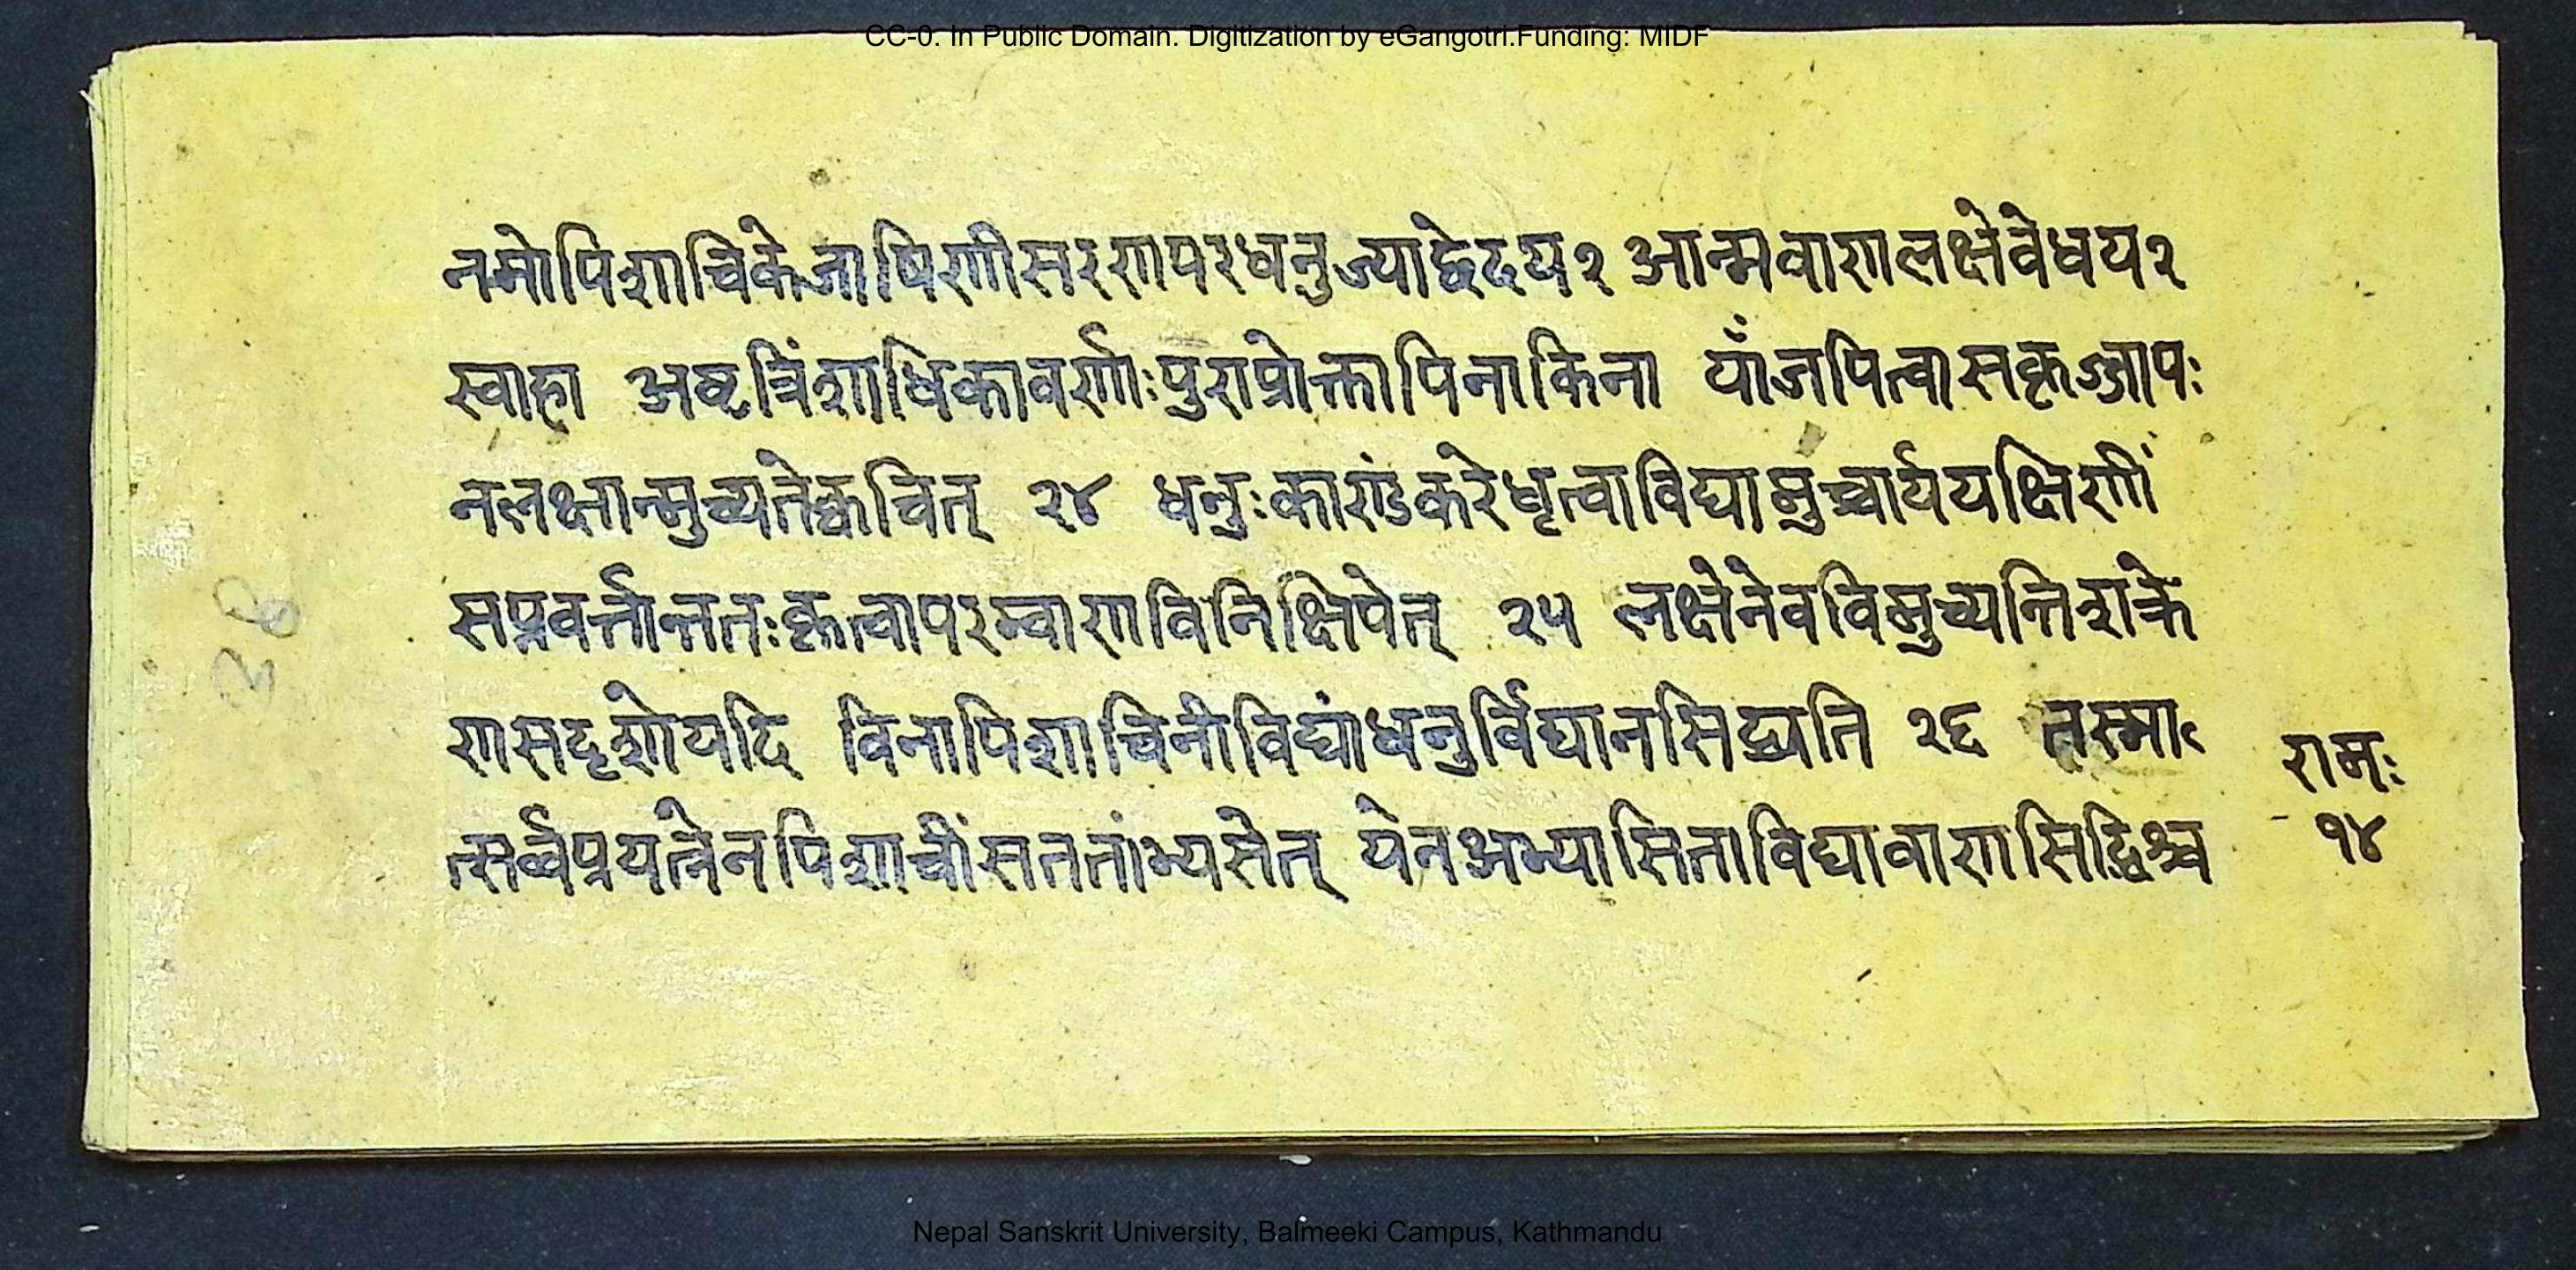 CC-0. In Public Domain. Digitization by eGangotri.Funding: MIDF
नमोपिशाचिकेजाषिणीसरगापरधनुज्याद्वेदय२ आन्मवाणलक्षेवेधय२
स्वाहा अष्टत्रिंशाधिकावर्णाःपुराप्रोक्तापिनाकिना याँजपित्वासकृज्जापः
नलक्षान्मुच्यतेक्वचित् २४ धनुःकाण्डंकरेधृत्वाविद्यामुच्चार्ययक्षिणीं
सप्तवर्त्तान्ततःकृत्वापरम्वाणविनिक्षिपेत् २५ लक्षेनेवविमुच्यन्तिशक्रे
णसदृशोयदि विनापिशाचिनीविद्यांधनुर्विद्यानसिद्ध्यति २६ तस्मा
त्सर्व्वप्रयत्नेनपिशाचींसततांभ्यसेत् येनअभ्यासिताविद्यावाणसिद्धिश्च
रामः
१४
Nepal Sanskrit University, Balmeeki Campus, Kathmandu